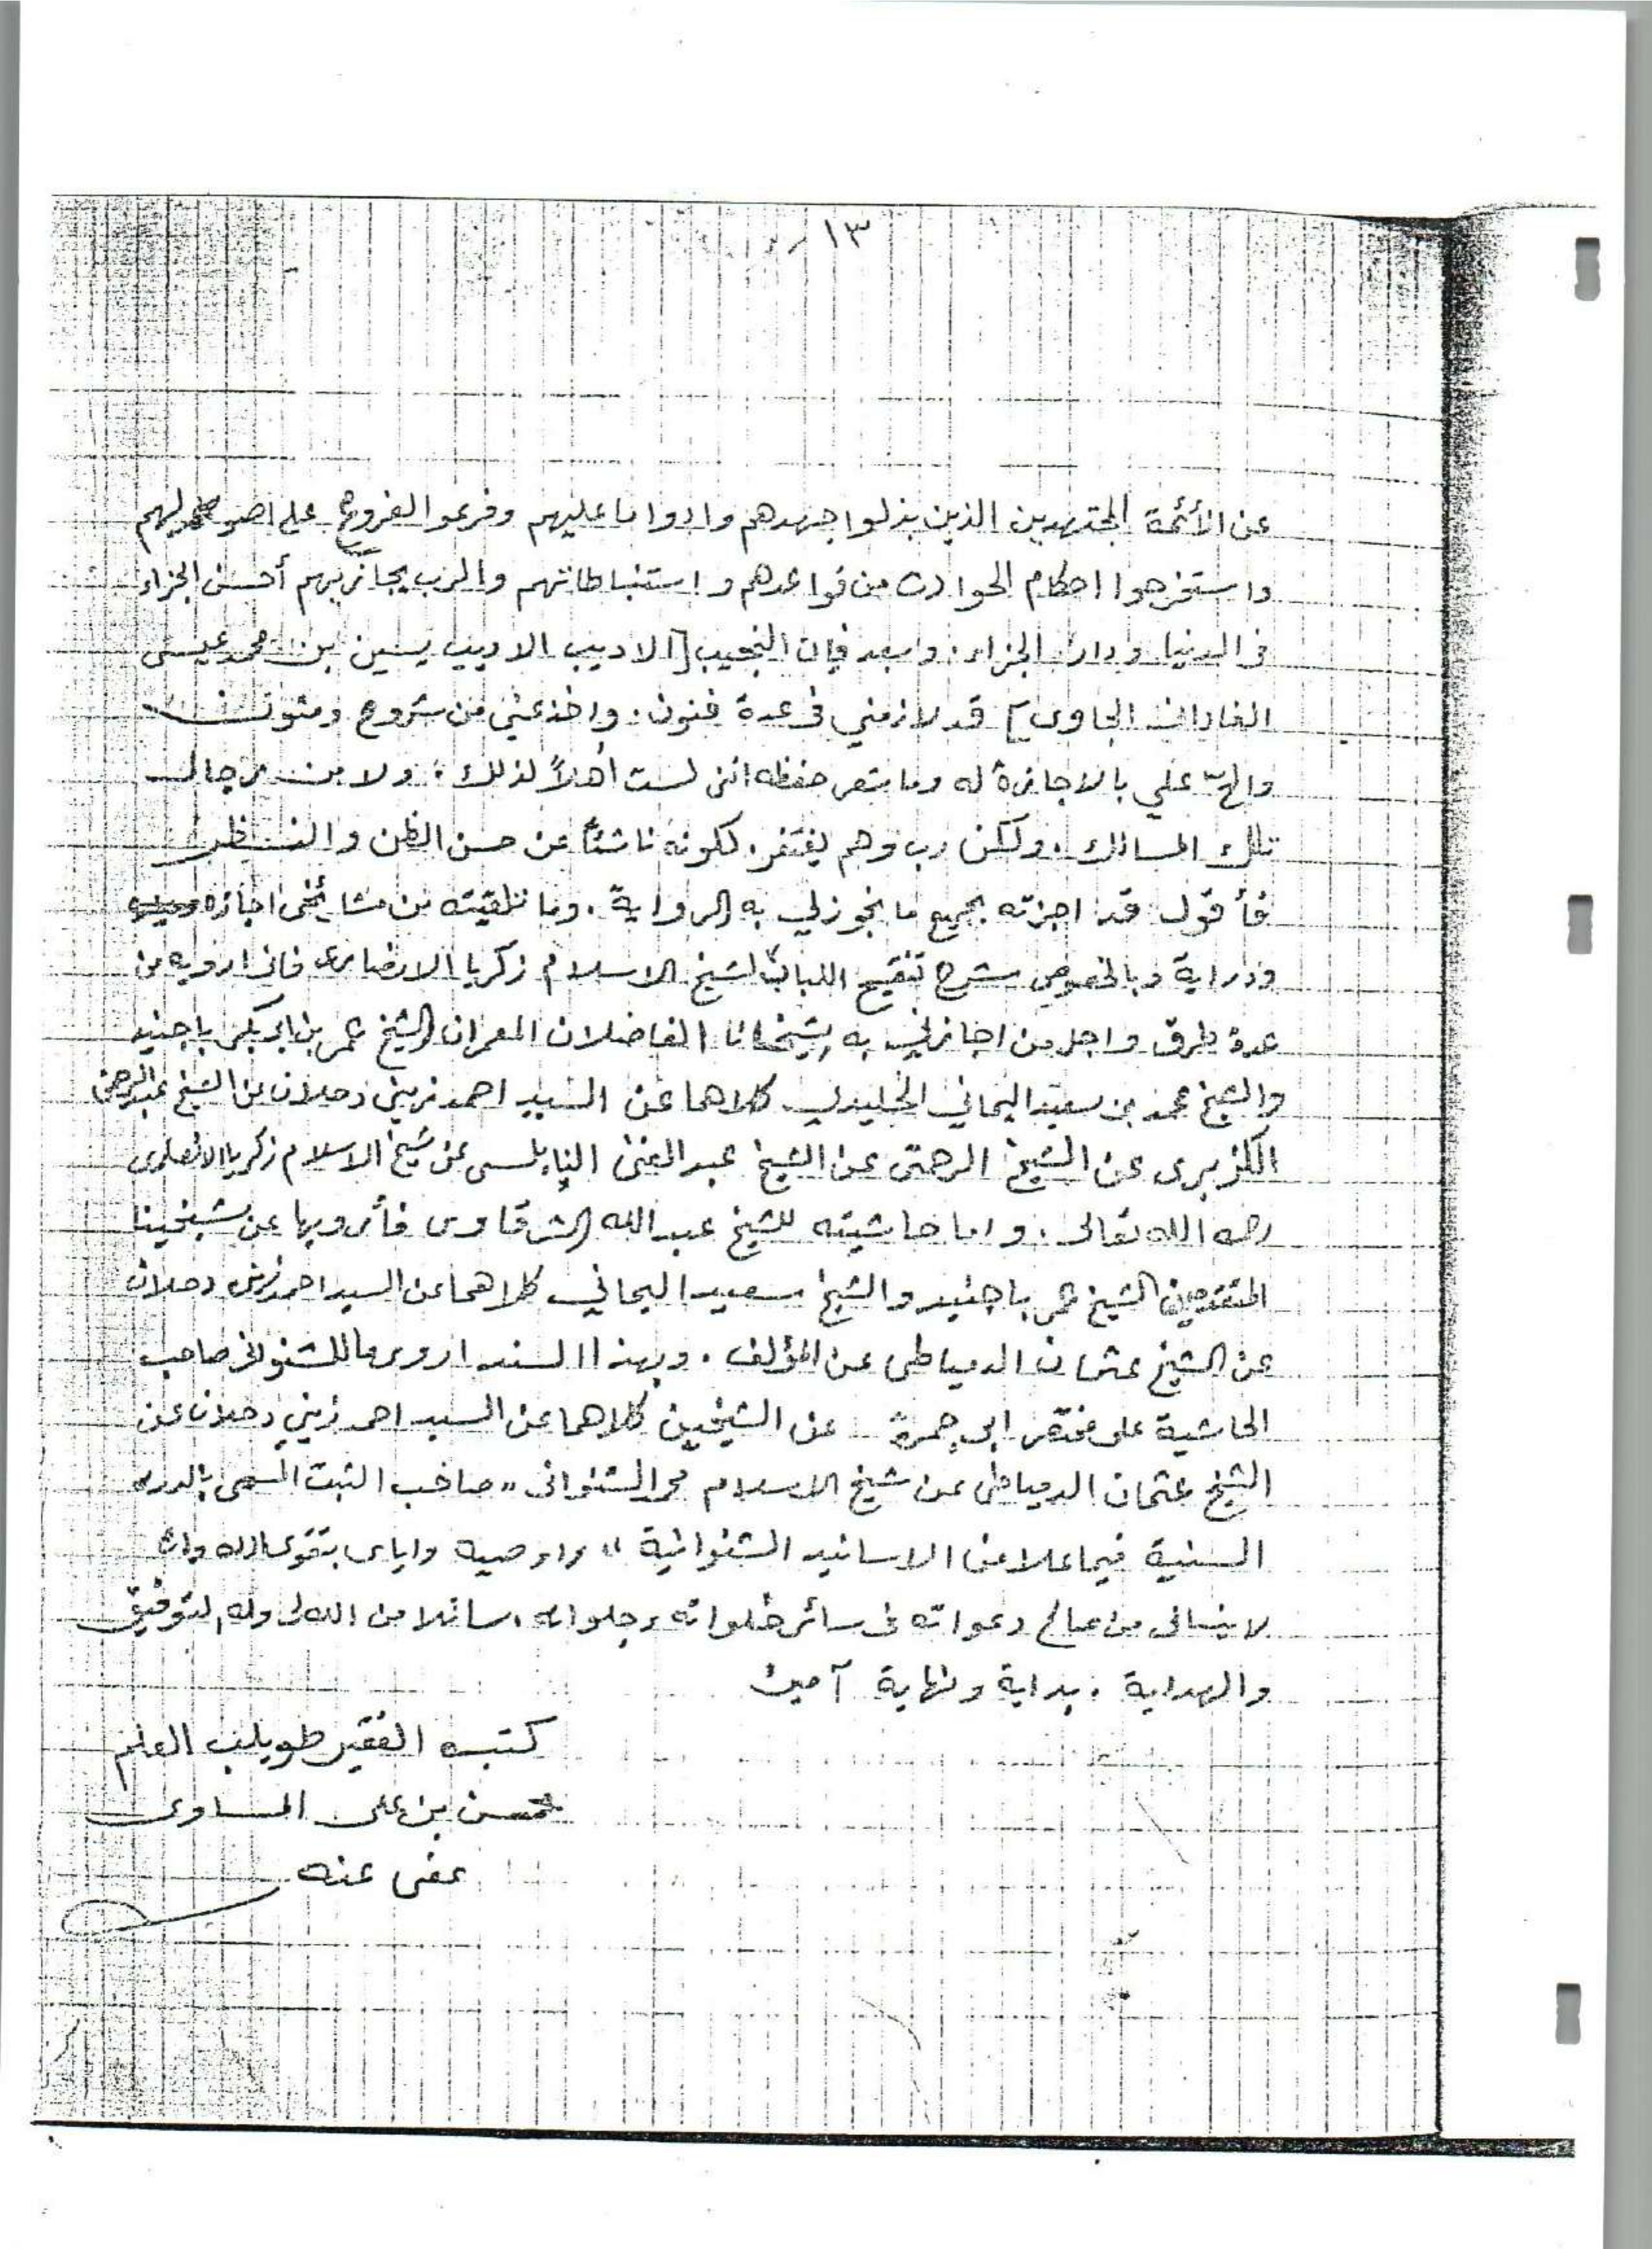 ١٣
عن الأئمة المجتهدين الذين بذلوا جهدهم وادوا ما عليهم وفرعوا الفروع على اصولهم
واستخرجوا احكام الحوادث من قواعدهم واستنباطاتهم والرب يجازيهم أحسن الجزاء
في الدنيا ودار الجزاء. وبعد فإن النجيب [الاديب الاريب يسين بن محمد عيسى
الفاداني الجاوي] قد لازمني في عدة فنون. واخذ عني من شروح ومتون
والحّ علي بالاجازة له وما شعر حفظه انني لست أهلاً لذلك. ولا من رجال
تلك المسالك. ولكن رب وهم يغتفر. لكونه ناشئاً عن حسن الظن والنظر
فأقول قد اجزته بجميع ما يجوز لي به الرواية. وما تلقيته من مشائخي اجازة
ودراية وبالخصوص شرح تنقيح اللباب لشيخ الاسلام زكريا الانصاري فاني ارويه من
عدة طرق واجل من اجازني به شيخانا الفاضلان المعمران الشيخ عمر بن ابي بكر باجنيد
والشيخ محمد بن سعيد اليماني الخليدي كلاهما عن السيد احمد زيني دحلان عن الشيخ عبد الرحمن
الكزبري عن الشيخ الرحمتي عن الشيخ عبد الغني النابلسي عن شيخ الاسلام زكريا الانصاري
رحمه الله تعالى. واما حاشيته للشيخ عبد الله الشرقاوي فأرويها عن شيخينا
المتقدمين الشيخ عمر باجنيد والشيخ سعيد اليماني كلاهما عن السيد احمد زيني دحلان
عن الشيخ عثمان الدمياطي عن المؤلف. وبهذا السند اروي ما للشنواني صاحب
الحاشية على مختصر ابي جمرة عن الشيخين كلاهما عن السيد احمد زيني دحلان عن
الشيخ عثمان الدمياطي عن شيخ الاسلام محمد الشنواني "صاحب الثبت المسمى بالدرر
السنية فيما علا من الاسانيد الشنوانية" واوصيه واياي بتقوى الله وان
لا ينساني من صالح دعواته في سائر خلواته وجلواته. سائلا من الله لي وله التوفيق
والهداية. بداية ونهاية آمين
كتبه الفقير طويلب العلم
محسن بن علي المساوى
عفى عنه